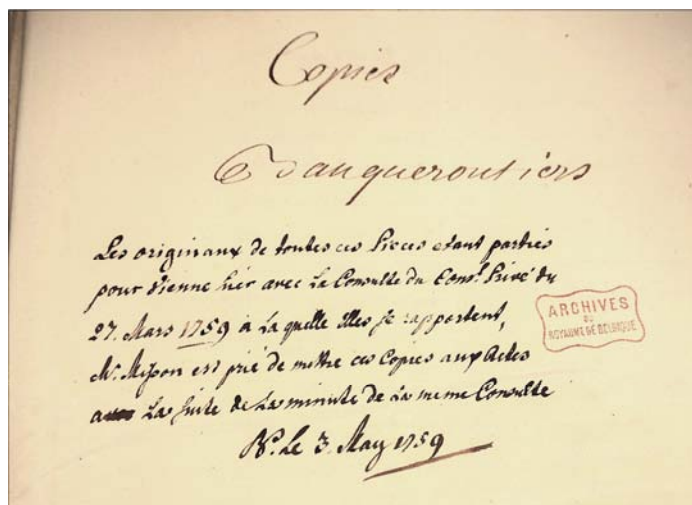 Copies
Banqueroutiers
Les originaux de toutes ces Pieces etant parties
pour Vienne hier avec la Consulte du Cons.l Privé du
27. Mars 1759 à la quelle Elles se rapportent,
Mr. Misson est prié de mettre ces Copies aux Actes
a La suite de La minute de La meme Consulte
Le 3. May 1759
ARCHIVES
DU
ROYAUME DE BELGIQUE